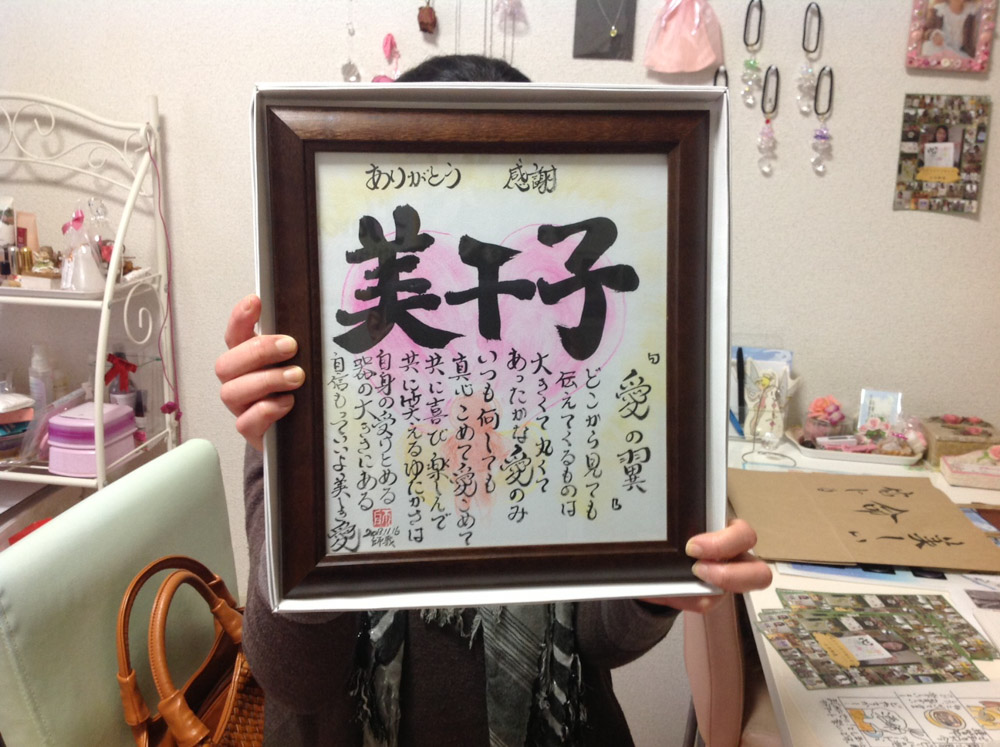 ありがとう 感謝
美千子
『愛の翼』
どこから見ても
伝えてくるものは
大きくて丸くて
あったかな愛のみ
いつも何しても
真心こめて愛こめて
共に喜び楽しんで
共に笑えるゆたかさは
自身の受けとめる
器の大きさにある
自信もっていいよ美しき愛
2013.11.16
美しい
命